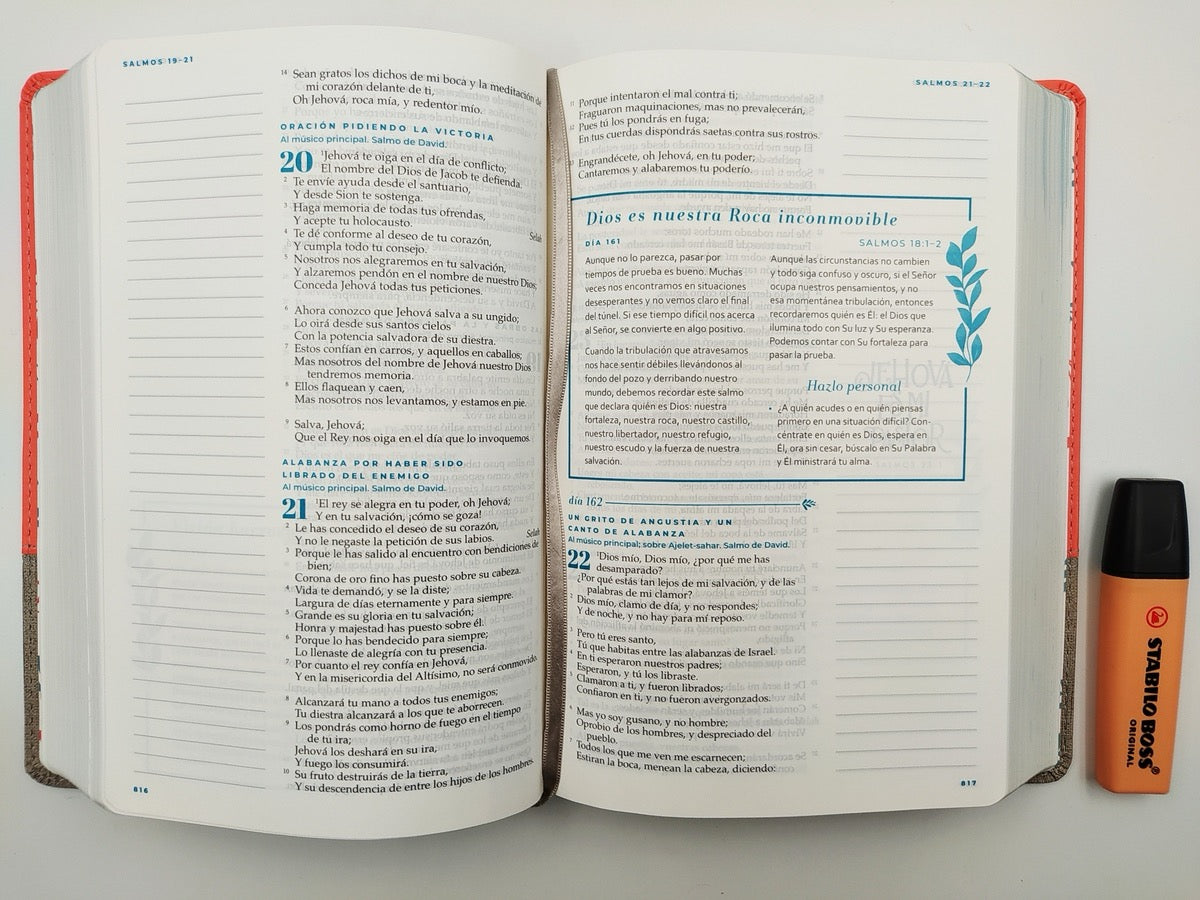 SALMOS 19–21
14 Sean gratos los dichos de mi boca y la meditación de
mi corazón delante de ti,
Oh Jehová, roca mía, y redentor mío.
ORACIÓN PIDIENDO LA VICTORIA
Al músico principal. Salmo de David.
20 1Jehová te oiga en el día de conflicto;
El nombre del Dios de Jacob te defienda.
2 Te envíe ayuda desde el santuario,
Y desde Sion te sostenga.
3 Haga memoria de todas tus ofrendas,
Y acepte tu holocausto. Selah
4 Te dé conforme al deseo de tu corazón,
Y cumpla todo tu consejo.
5 Nosotros nos alegraremos en tu salvación,
Y alzaremos pendón en el nombre de nuestro Dios;
Conceda Jehová todas tus peticiones.
6 Ahora conozco que Jehová salva a su ungido;
Lo oirá desde sus santos cielos
Con la potencia salvadora de su diestra.
7 Estos confían en carros, y aquellos en caballos;
Mas nosotros del nombre de Jehová nuestro Dios
tendremos memoria.
8 Ellos flaquean y caen,
Mas nosotros nos levantamos, y estamos en pie.
9 Salva, Jehová;
Que el Rey nos oiga en el día que lo invoquemos.
ALABANZA POR HABER SIDO
LIBRADO DEL ENEMIGO
Al músico principal. Salmo de David.
21 1El rey se alegra en tu poder, oh Jehová;
Y en tu salvación, ¡cómo se goza!
2 Le has concedido el deseo de su corazón,
Y no le negaste la petición de sus labios. Selah
3 Porque le has salido al encuentro con bendiciones de
bien;
Corona de oro fino has puesto sobre su cabeza.
4 Vida te demandó, y se la diste;
Largura de días eternamente y para siempre.
5 Grande es su gloria en tu salvación;
Honra y majestad has puesto sobre él.
6 Porque lo has bendecido para siempre;
Lo llenaste de alegría con tu presencia.
7 Por cuanto el rey confía en Jehová,
Y en la misericordia del Altísimo, no será conmovido.
8 Alcanzará tu mano a todos tus enemigos;
Tu diestra alcanzará a los que te aborrecen.
9 Los pondrás como horno de fuego en el tiempo
de tu ira;
Jehová los deshará en su ira,
Y fuego los consumirá.
10 Su fruto destruirás de la tierra,
Y su descendencia de entre los hijos de los hombres.
816
SALMOS 21–22
11 Porque intentaron el mal contra ti;
Fraguaron maquinaciones, mas no prevalecerán,
12 Pues tú los pondrás en fuga;
En tus cuerdas dispondrás saetas contra sus rostros.
13 Engrandécete, oh Jehová, en tu poder;
Cantaremos y alabaremos tu poderío.
Dios es nuestra Roca inconmovible
DÍA 161
SALMOS 18:1–2
Aunque no lo parezca, pasar por
tiempos de prueba es bueno. Muchas
veces nos encontramos en situaciones
desesperantes y no vemos claro el final
del túnel. Si ese tiempo difícil nos acerca
al Señor, se convierte en algo positivo.
Cuando la tribulación que atravesamos
nos hace sentir débiles llevándonos al
fondo del pozo y derribando nuestro
mundo, debemos recordar este salmo
que declara quién es Dios: nuestra
fortaleza, nuestra roca, nuestro castillo,
nuestro libertador, nuestro refugio,
nuestro escudo y la fuerza de nuestra
salvación.
Aunque las circunstancias no cambien
y todo siga confuso y oscuro, si el Señor
ocupa nuestros pensamientos, y no
esa momentánea tribulación, entonces
recordaremos quién es Él: el Dios que
ilumina todo con Su luz y Su esperanza.
Podemos contar con Su fortaleza para
pasar la prueba.
Hazlo personal
• ¿A quién acudes o en quién piensas
primero en una situación difícil? Con-
céntrate en quién es Dios, espera en
Él, ora sin cesar, búscalo en Su Palabra
y Él ministrará tu alma.
día 162
UN GRITO DE ANGUSTIA Y UN
CANTO DE ALABANZA
Al músico principal; sobre Ajelet-sahar. Salmo de David.
22 1Dios mío, Dios mío, ¿por qué me has
desamparado?
¿Por qué estás tan lejos de mi salvación, y de las
palabras de mi clamor?
2 Dios mío, clamo de día, y no respondes;
Y de noche, y no hay para mí reposo.
3 Pero tú eres santo,
Tú que habitas entre las alabanzas de Israel.
4 En ti esperaron nuestros padres;
Esperaron, y tú los libraste.
5 Clamaron a ti, y fueron librados;
Confiaron en ti, y no fueron avergonzados.
6 Mas yo soy gusano, y no hombre;
Oprobio de los hombres, y despreciado del
pueblo.
7 Todos los que me ven me escarnecen;
Estiran la boca, menean la cabeza, diciendo:
817
STABILO BOSS®
ORIGINAL